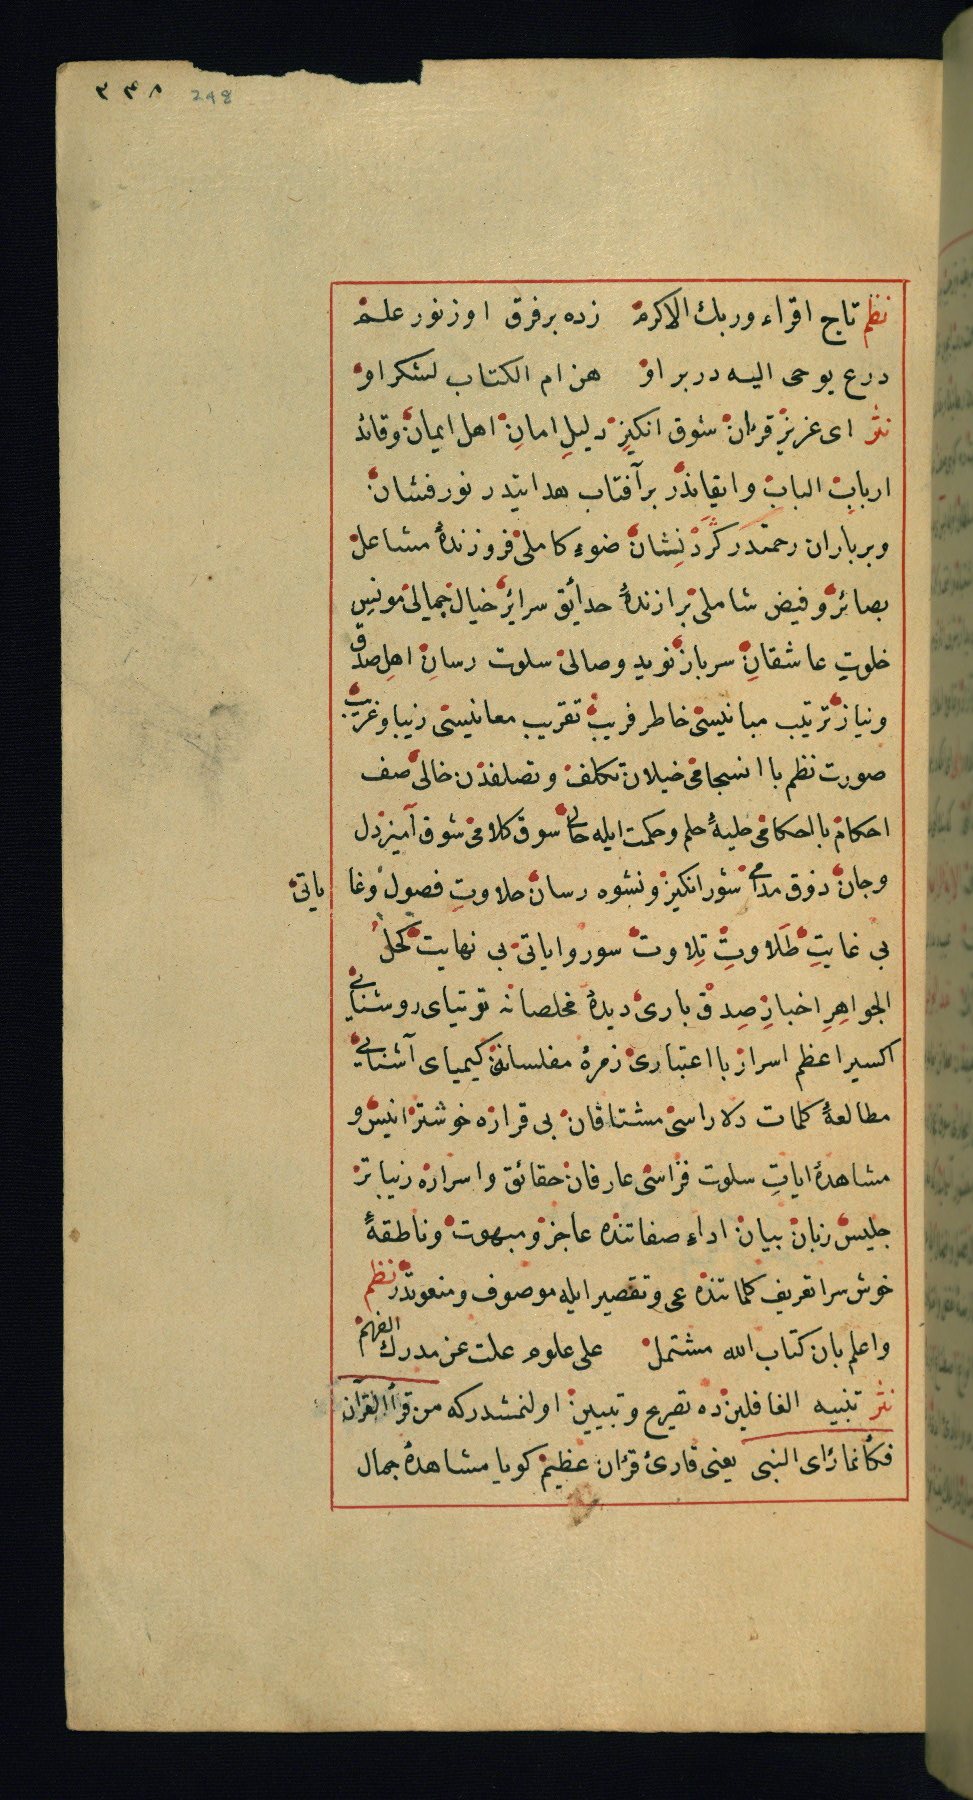 ٢٤٨ 248
نظم تاج اقراء وربك الاكرم زده برفرق اوزنور علم
درع يوحى اليه دربر او هن ام الكتاب لشكر او
نثر اى عزيز قرءان شوق انكيز دليلِ امانِ اهل ايمان وقائد
اربابِ الباب وايقاندر برآفتاب هدايتدر نورفشان
وبرباران رحمتدر كَردنِشان ضوءِ كاملى فروزندهٔ مشاعل
بصائر وفيض شاملى برازندهٔ حدائق سرائر خيال جمالى مونسِ
خلوتِ عاشقانِ سرباز نويد وصالى سلوت رسانِ اهلِ صدق
ونياز ترتيب مبانيسى خاطر فريب تقريب معانيسى زيبا وغريب
صورت نظم با انسجامى خيلان تكلف وتصلفدن خالى صف
احكام بااحكامى حليهٔ حلم وحكمت ايله حالى سوق كلامى شوق آميز دل
وجان ذوق مدامى شورانكيز ونشوه رسان حلاوتِ فصول وغا ياتى
بى غايتِ طَلاوتِ تِلاوت سور واياتى بى نهايت كحل
الجواهِرِ اخبارِ صِدق بارى ديدهٔ مخلصانه توتياى روشنايى
اكسير اعظم اسرار با اعتبارى زمرهٔ مفلسانه كيمياى آشنايى
مطالعهٔ كلمات دلاراسى مشتاقان بى قراره خوشتر انيس و
مشاهدهٔ اياتِ سلوت فزاسى عارفان حقائق واسراره زيباتر
جليس زبان بيان اداءِ صفاتنده عاجز ومبهوت وناطقهٔ
خوش سرا تعريف كلماتنده عى وتقصير ايله موصوف ومنعوتدر نظم
واعلم بان كتاب الله مشتمل على علوم علت عن مدرك الفهم
نثر تنبيه الغافلين ده تصريح وتبيين اولنمشدركه من قرأ القرآن
فكأنما رأى النبى يعنى قارئ قرءان عظيم كويا مشاهدهٔ جمال